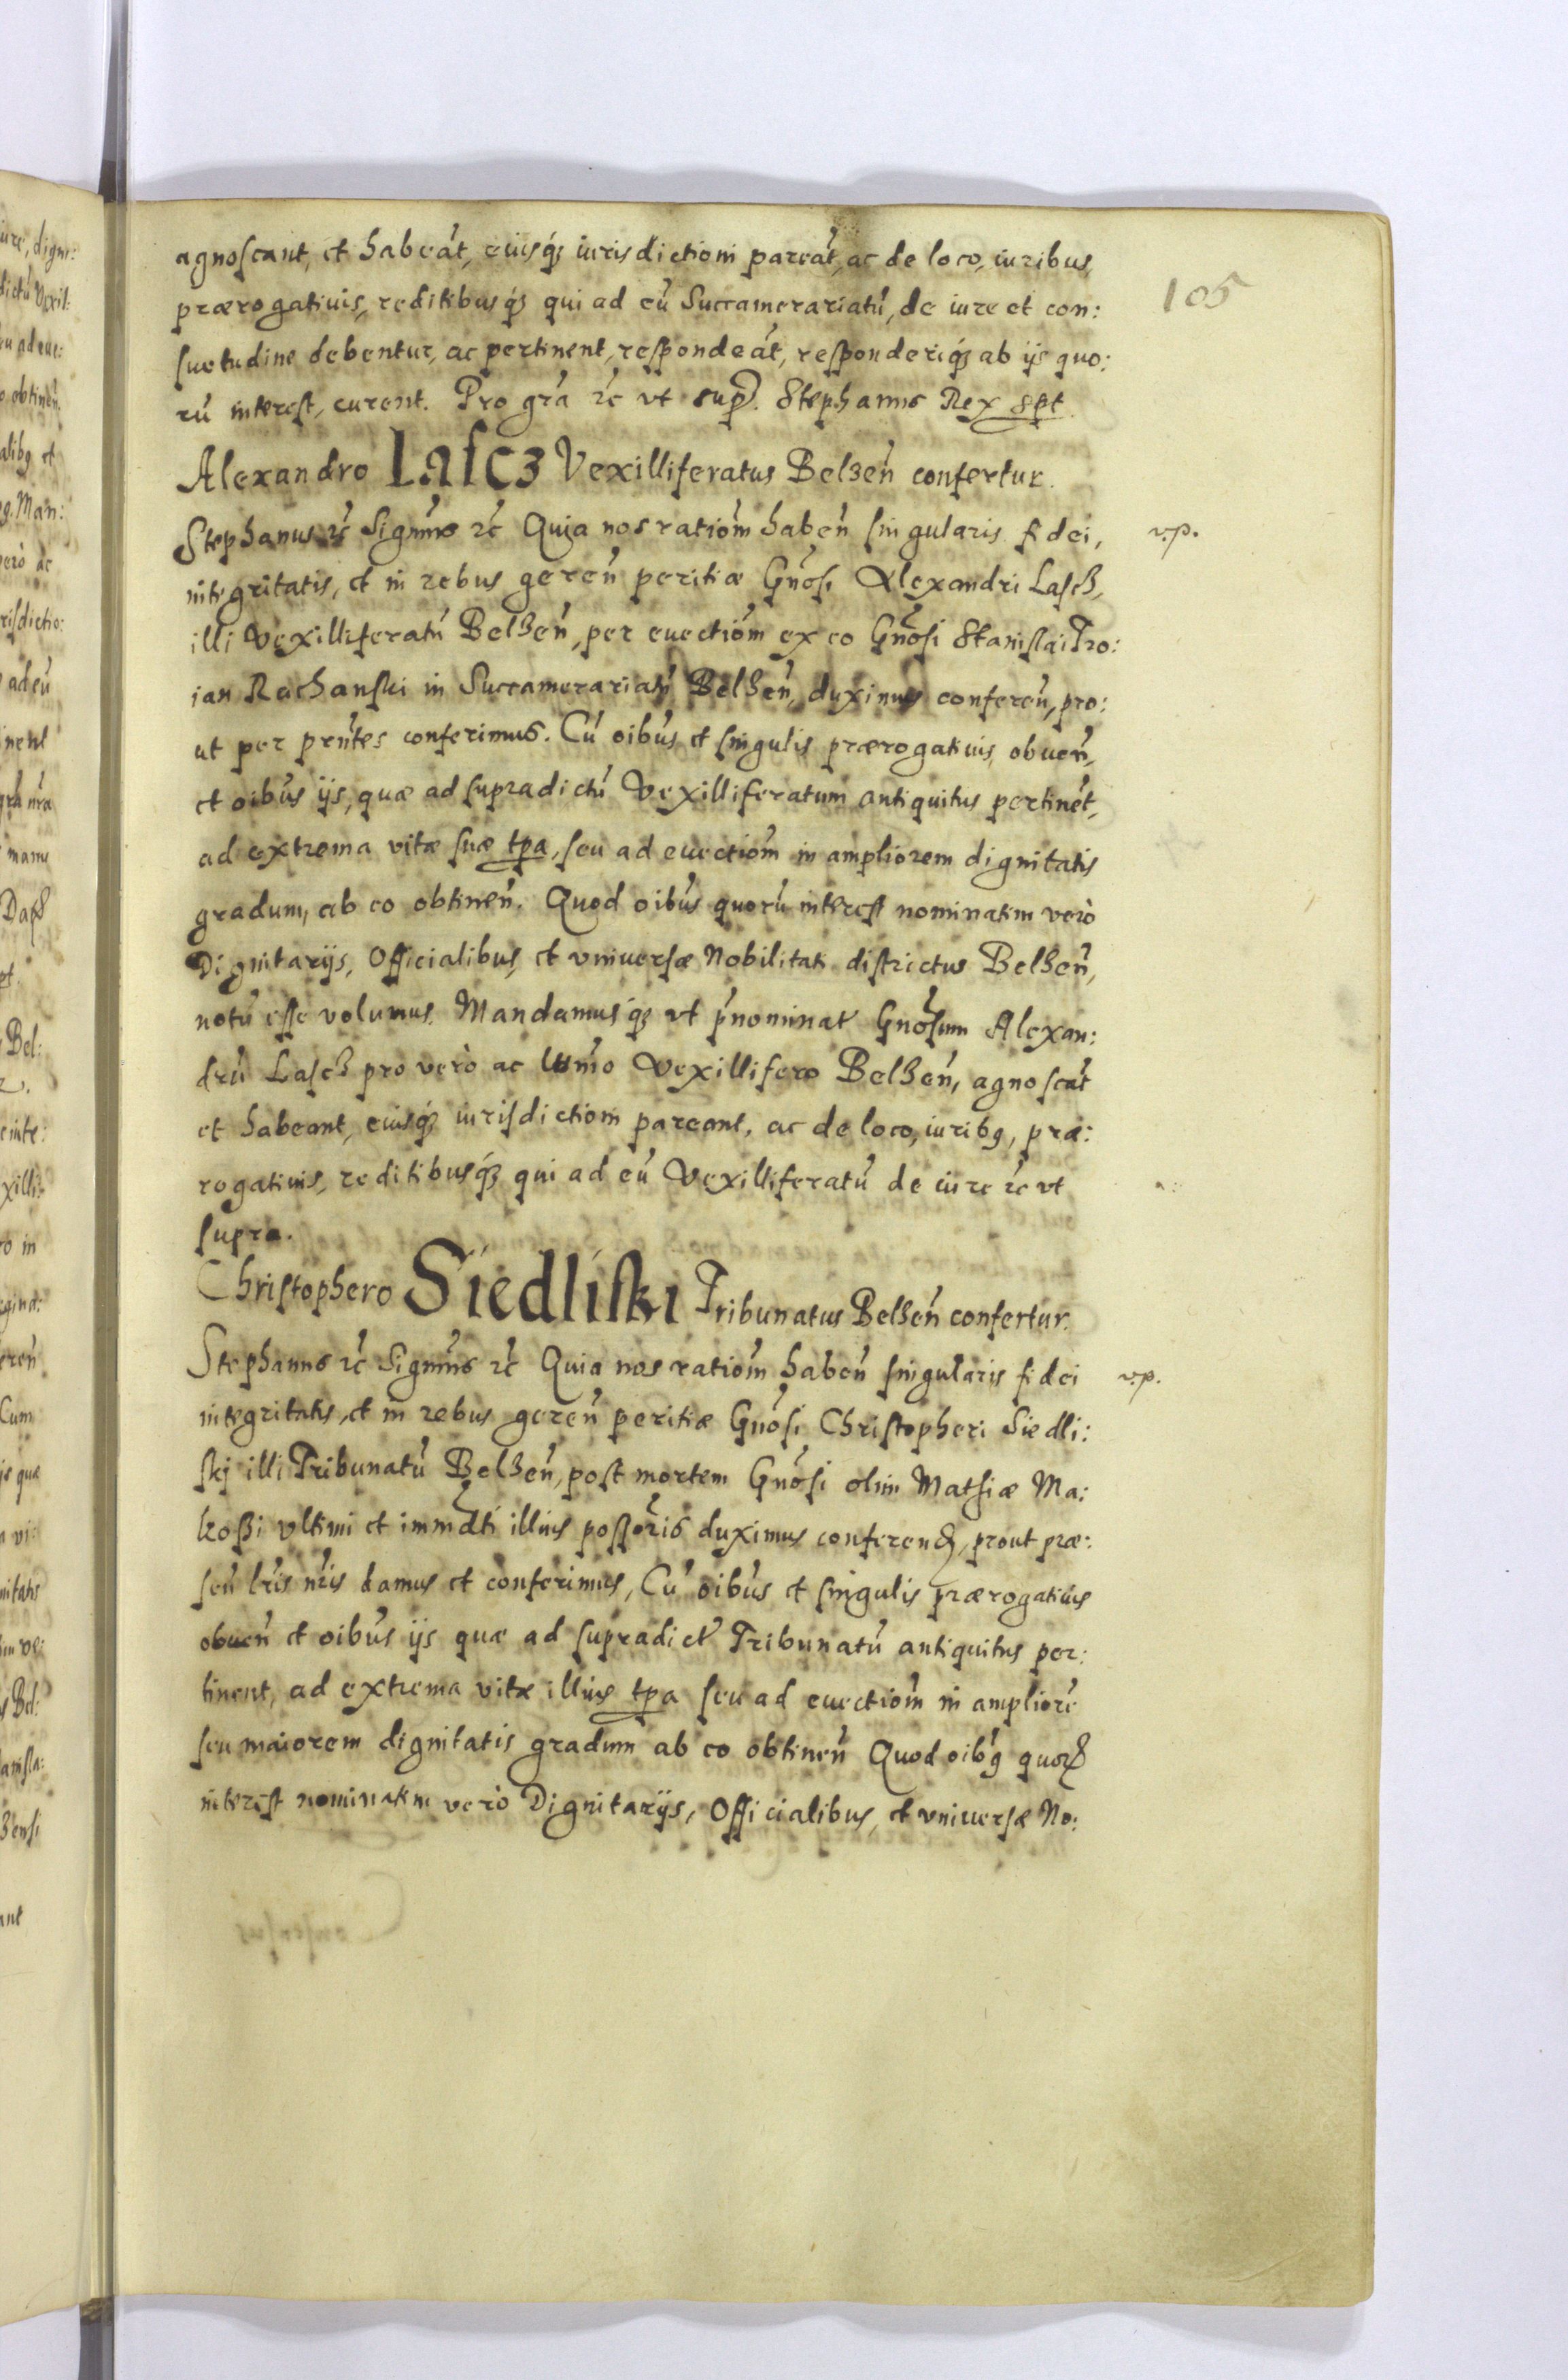 105
agnoscant, et habeāt, eiusq́ʒ iurisdictioni pareāt, ac de loco, iuribus,
prærogatiuis, reditibusq́ʒ qui ad eū Succamerariatū, de iure et con:
suetudine debentur, ac pertinent, respondeāt, responderiq́ʒ ab ijs quo:
rū interest, curent. Pro gr̄a ꝛc̄ vt sup̄. Stephanus Rex sp̄t.
Alexandro Lascz Vexilliferatus Belzen̄ confertur.
Stephanus ꝛc̄ Signm̄s ꝛc̄ Quia nos ratiōm haben̄ singularis fidei,
v.p.
integritatis, et in rebus geren̄ peritiæ Gn̄osi Alexandri Lascz,
illi Vexilliferatū Belzen̄, per euectiōm ex eo Gn̄osi Stanislai Tro:
ian Rachanski in Succamerariatū Belzen̄, duximus conferen̄, pro:
ut per prn̄tes conferimus. Cū oib̄us et singulis prærogatiuis, obuen̄,
et oib̄us ijs, quæ ad supradictū Vexilliferatum antiquitus pertinēt,
ad extrema vitæ suæ tp̄a, seu ad euectiōm in ampliorem dignitatis
gradum, ab eo obtinen̄. Quod oib̄us quorū interest nominatim verò
Dignitarijs, Officialibus, et vniuersæ Nobilitati districtus Belzen̄,
notū esse volumus. Mandamusq́ʒ vt p̄nominat̄ Gn̄osum Alexan:
drū Lascz pro verò ac ltīmo Vexillifero Belzen̄, agnoscāt
et habeant, eiusq́ʒ iurisdictioni pareant, ac de loco, iuribꝯ, præ:
rogatiuis, reditibusq́ʒ qui ad eū Vexilliferatū de iure ꝛc̄ vt
supra.
Christophero Siedliski Tribunatus Belzen̄ confertur.
Stephanus ꝛc̄ Signm̄s ꝛc̄ Quia nos ratiōm haben̄ singularis fidei
v.p.
integritatis, et in rebus geren̄ peritiæ Gn̄osi Christopheri Siedli:
skj illi Tribunatū Belzen̄, post mortem Gn̄osi olim Mathiæ Ma:
koßi vltimi et immd̄ti illius poss̄oris duximus conferenꝫ, prout præ:
sen̄ lr̄is nr̄is damus et conferimus, Cū oib̄us et singulis prærogatiuis
obuen̄ et oib̄us ijs quæ ad supradict̄ Tribunatū antiquitus per:
tinent, ad extrema vitæ illius tp̄a seu ad euectiōm in ampliorē
seu maiorem dignitatis gradum ab eo obtinen̄ Quod oib̄ꝯ quorꝫ
interest nominatim verò Dignitarijs, Officialibus, et vniuersæ No: